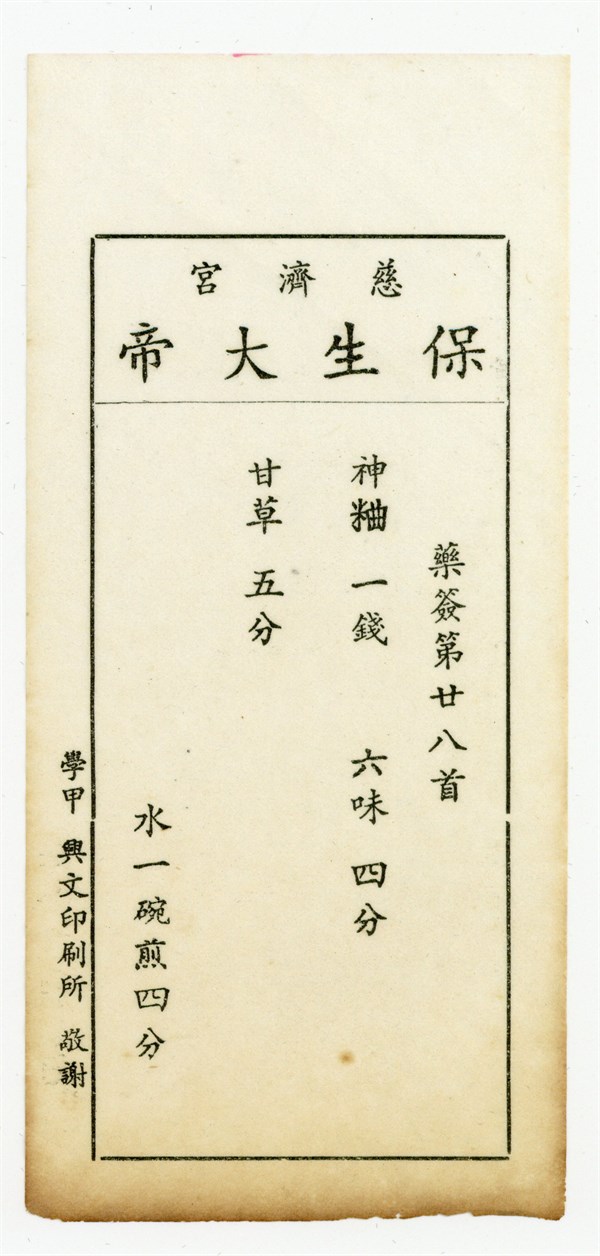 慈濟宮
保生大帝
藥簽第廿八首
神粬 一錢 六味 四分
甘草 五分
水一碗煎四分
學甲 興文印刷所 敬謝